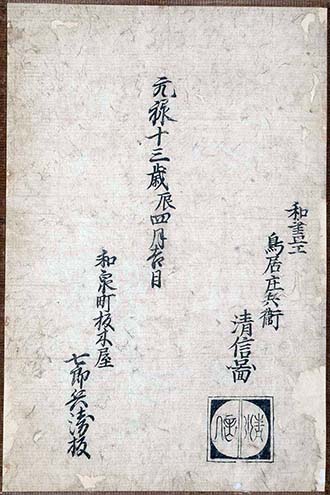 和畫工
鳥居庄兵衛
清信圖
清信
元祿十三歳辰四月吉日
和泉町板木屋
七郎兵衛板